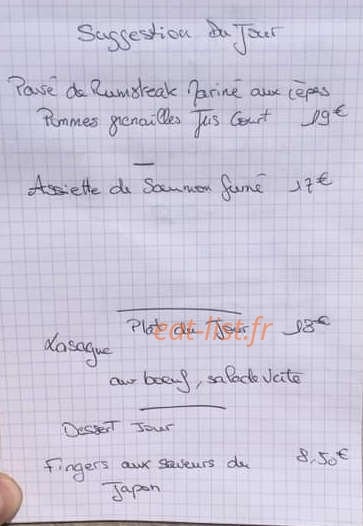 Suggestion du Jour
Pavé de Rumsteak Mariné aux cèpes
Pommes grenailles Jus Court 19€
Assiette de Saumon fumé 17€
Plat du Jour 13€
eat-list.fr
Lasagne
au boeuf, salade verte
Dessert Jour
Fingers aux saveurs du 8,50€
Japon